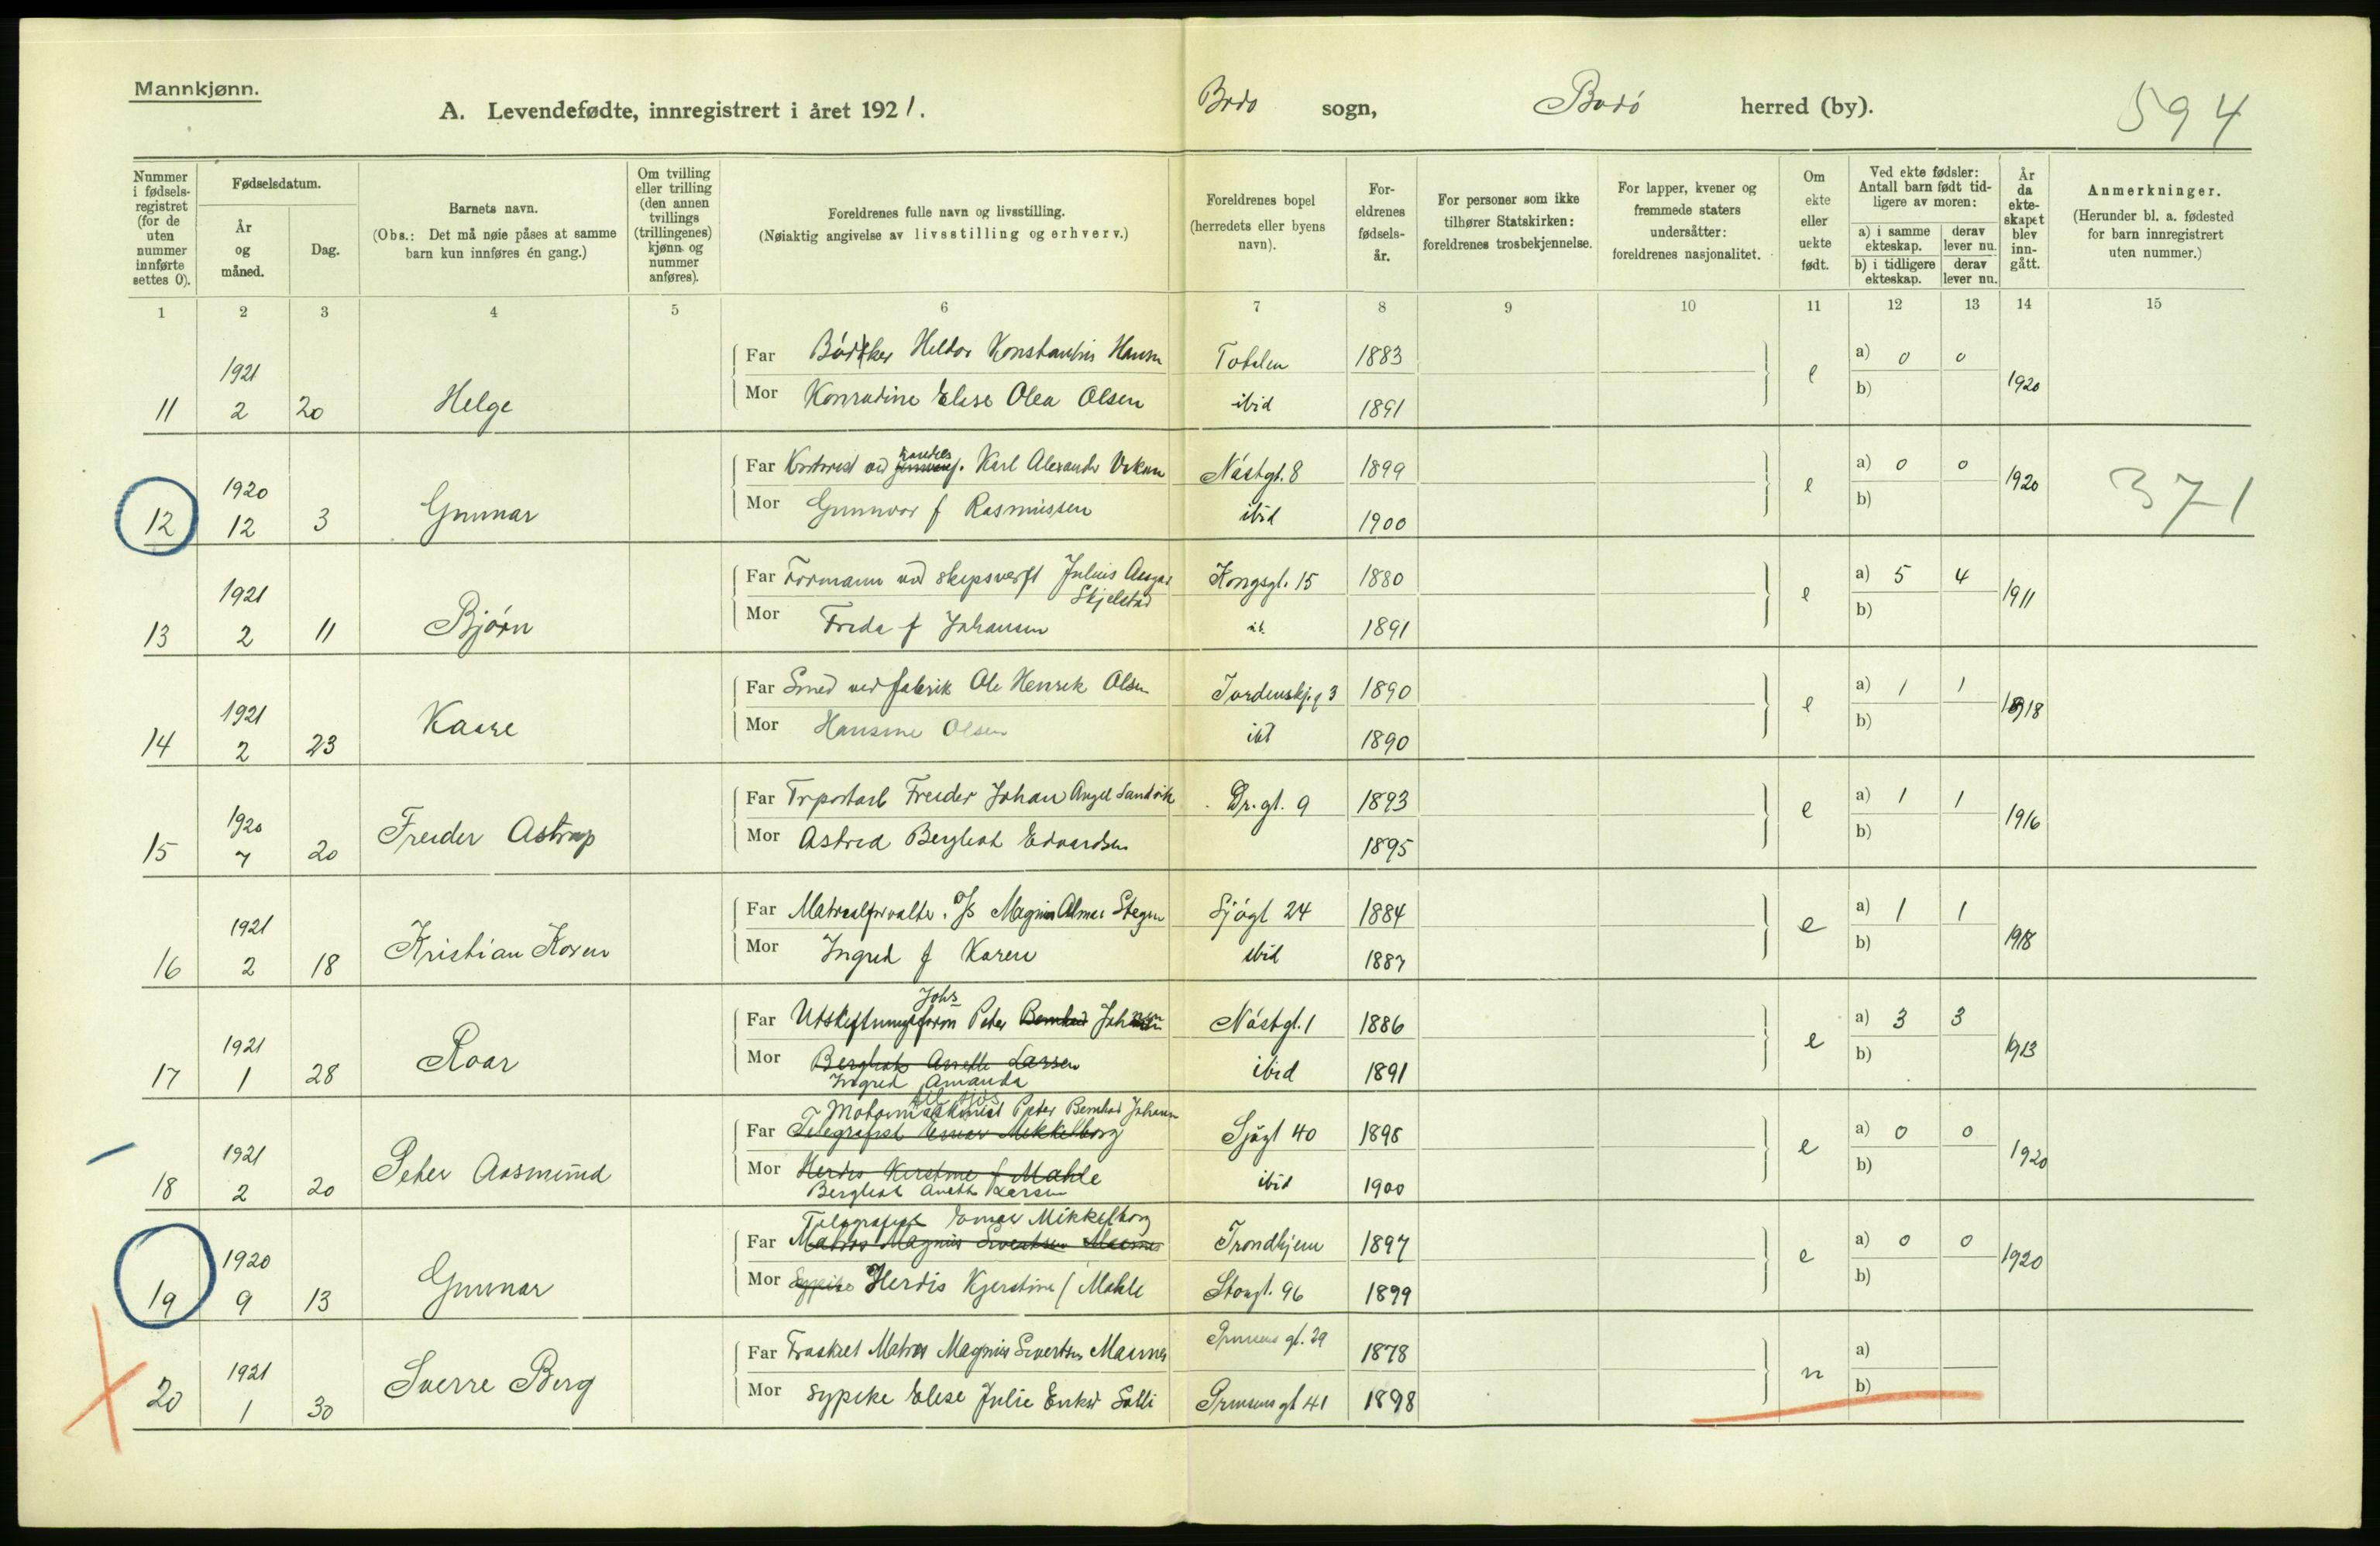 Mannkjønn.
A. Levendefødte, innregistrert i året 1921.
Bodo sogn, Bodö herred (by).
594
Nummer i fødsels-registret (for de uten nummer innførte settes 0).
Fødselsdatum.
År og måned.
Dag.
Barnets navn.
(Obs.: Det må nøie påses at samme barn kun innføres én gang.)
Om tvilling eller trilling (den annen tvillings (trillingenes) kjønn og nummer anføres).
Foreldrenes fulle navn og livsstilling.
(Nøiaktig angivelse av livsstilling og erhverv.)
Foreldrenes bopel (herredets eller byens navn).
For-eldrenes fødsels-år.
For personer som ikke tilhører Statskirken: foreldrenes trosbekjennelse.
For lapper, kvener og fremmede staters undersåtter: foreldrenes nasjonalitet.
Om ekte eller uekte født.
Ved ekte fødsler: Antall barn født tid-ligere av moren:
a) i samme ekteskap. derav lever nu.
b) i tidligere ekteskap. derav lever nu.
År da ekte-skapet blev inn-gått.
Anmerkninger.
(Herunder bl. a. fødested for barn innregistrert uten nummer.)
1 2 3 4 5 6 7 8 9 10 11 12 13 14 15
Far Bödtker Heldor Konstantin Hansen Totalen 1883 a) 0 0
1921
11 2 20 Helge
Mor Konradine Elise Olea Olsen ibid 1891 e b) 1920
Far Kontorist ved handels f. Karl Alexander Nästgt. 8 1899 a) 0 0
1920
12 12 3 Gunnar
Mor Gunnvor f Rasmussen ibid 1900 e b) 1920 371
Far Formann ved skipsverft Julius Ansgar Skjelstad Kongsgt. 15 1880 a) 5 4
1921
13 2 11 Bjørn
Mor Freda f Johansen ib. 1891 e b) 1911
Far Smed ved fabrik Ole Henrik Olsen Tordenskj.g 3 1890 a) 1 1
1921
14 2 23 Kaare
Mor Hansine Olsen ibd 1890 e b) 1918
Far Trportarb Freder Johan Angel Sandvik Dr. gt. 9 1893 a) 1 1
1920
15 7 20 Freder Astrup
Mor Astrid Bergliot Edvardsen 1895 e b) 1916
Far Matrealforvalter. O/S Magnus Almar Stegen Sjögt 24 1884 a) 1 1
1921
16 2 18 Kristian Koren
Mor Ingrid f Koren ibid 1887 e b) 1918
Johs
Far Utskiftningsform Peter Bernhad Johansen Nästgt. 1 1886 a) 3 3
1921
17 1 28 Roar
Mor Bergliot Anette Larsen ibid 1891 e b) 1913
Ingrid Amanda
til sjös
Motormaskinist Peter Bernhad Johansen
Far Telegrafist Einar Mikkelborg Sjögt 40 1898 a) 0 0
1921
18 2 20 Peter Aasmund
Mor Herdis Kerstine f Mahle ibid 1900 e b) 1920
Bergliot Anette Larsen
Telegrafist Einar Mikkelborg
Far Matros Magnus Sivertsen Maines Trondhjem 1897 a) 0 0
1920
19 9 13 Gunnar
Mor Sypike Herdis Kjerstine f Mahle Storgt. 96 1899 e b) 1920
Far Fraskilt Matros Magnus Sivertsen Maines Prinsens gt. 29 1878 a)
1921
20 1 30 Sverre Berg
Mor Sypike Elise Julie Eriksd Solli Prinsens gt 41 1898 n b)